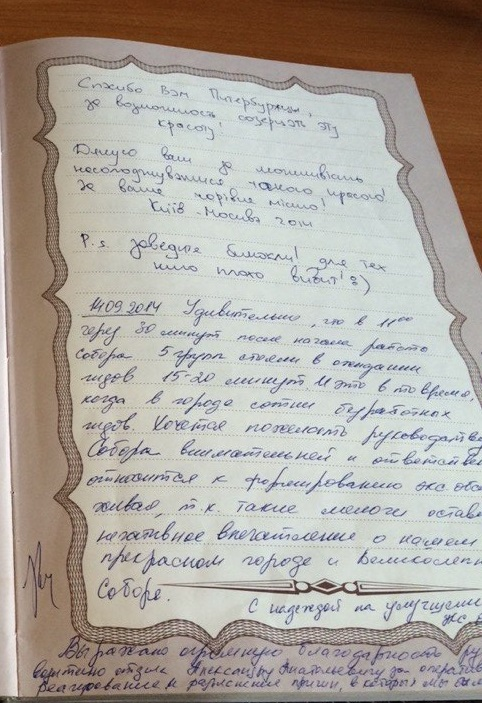 Спасибо Вам Питербуржцы,
за возможность созерцать эту
красоту!
Дякую вам за можливість
насолоджуватися такого красою!
За ваше чарівне місто!
Київ - Москва 2014
P.s. заведите бинокли! для тех
кто плохо видит! :)
14.09.2014 Удивительно, что в 11 00
через 30 минут после начала работы
собора 5 групп стояли в ожидании
гидов 15-20 минут. И это в то время,
когда в городе сотни безработных
гидов. Хочется пожелать
Собора внимательней и
относится к формированию экс
т.к. такие мелочи
негативное впечатление о нашем
прекрасном городе и
Соборе.
С надеждой на
Выражаю огромную благодарность
отдела Александру Анатольевичу за
реагирование и разъяснение причин, в которых мы